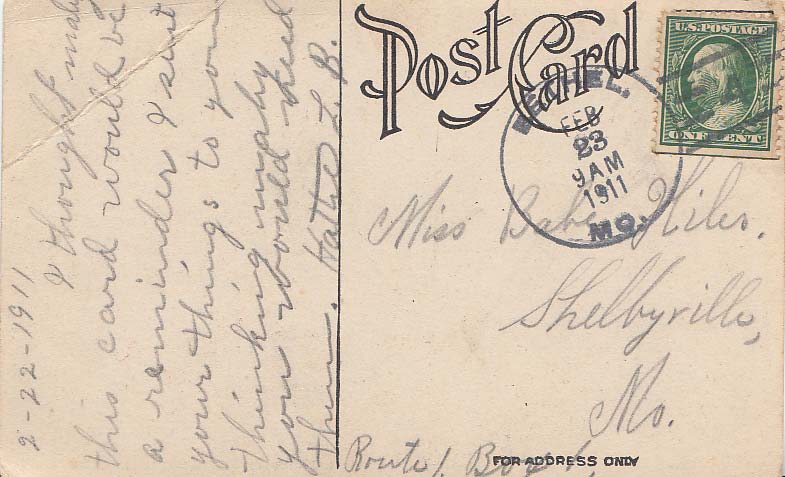 2-22-1911
I thought maby
this card would be
a reminder I sent
your things to you
thinking maby
you would need
them. Hattie L. B.
Post Card
U.S. POSTAGE
ONE CENT
BETHEL.
FEB
23
9 AM
1911
MO.
Miss Babe Hiler.
Shelbyville,
Mo.
Route 1. Box 1,
FOR ADDRESS ONLY